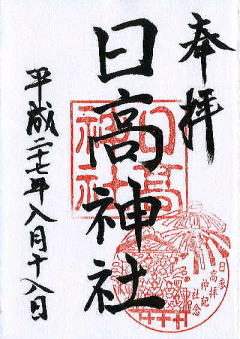 奉拝
日高神社
平成二十七年八月十八日
日高神社
日高神社
参拝記念